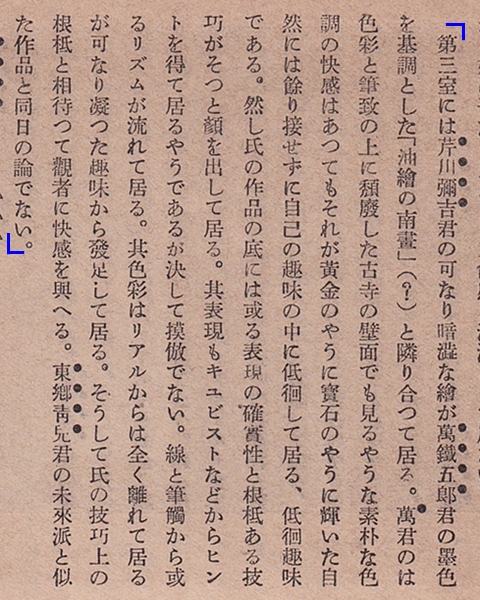 第三室には芹川彌吉君の可なり暗澁な繪が萬鐵五郎君の墨色
を基調とした「油繪の南畫」（？）と隣り合つて居る。萬君のは
色彩と筆致の上に頽廢した古寺の壁面でも見るやうな素朴な色
調の快感はあつてもそれが黃金のやうに寶石のやうに輝いた自
然には餘り接せずに自己の趣味の中に低徊して居る、低徊趣味
である。然し氏の作品の底には或る表現の確實性と根柢ある技
巧がそつと顏を出して居る。其表現もキユビストなどからヒン
トを得て居るやうであるが決して摸倣でない。線と筆觸から或
るリズムが流れて居る。其色彩はリアルからは全く離れて居る
が可なり凝つた趣味から發足して居る。そうして氏の技巧上の
根柢と相待つて觀者に快感を與へる。東鄕靑兒君の未來派と似
た作品と同日の論でない。